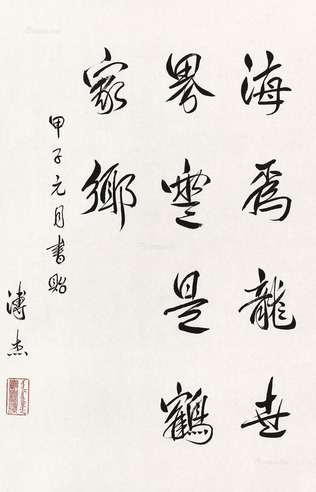 海為龍世
界雲是鶴
家鄉
甲子元月書貽
溥杰